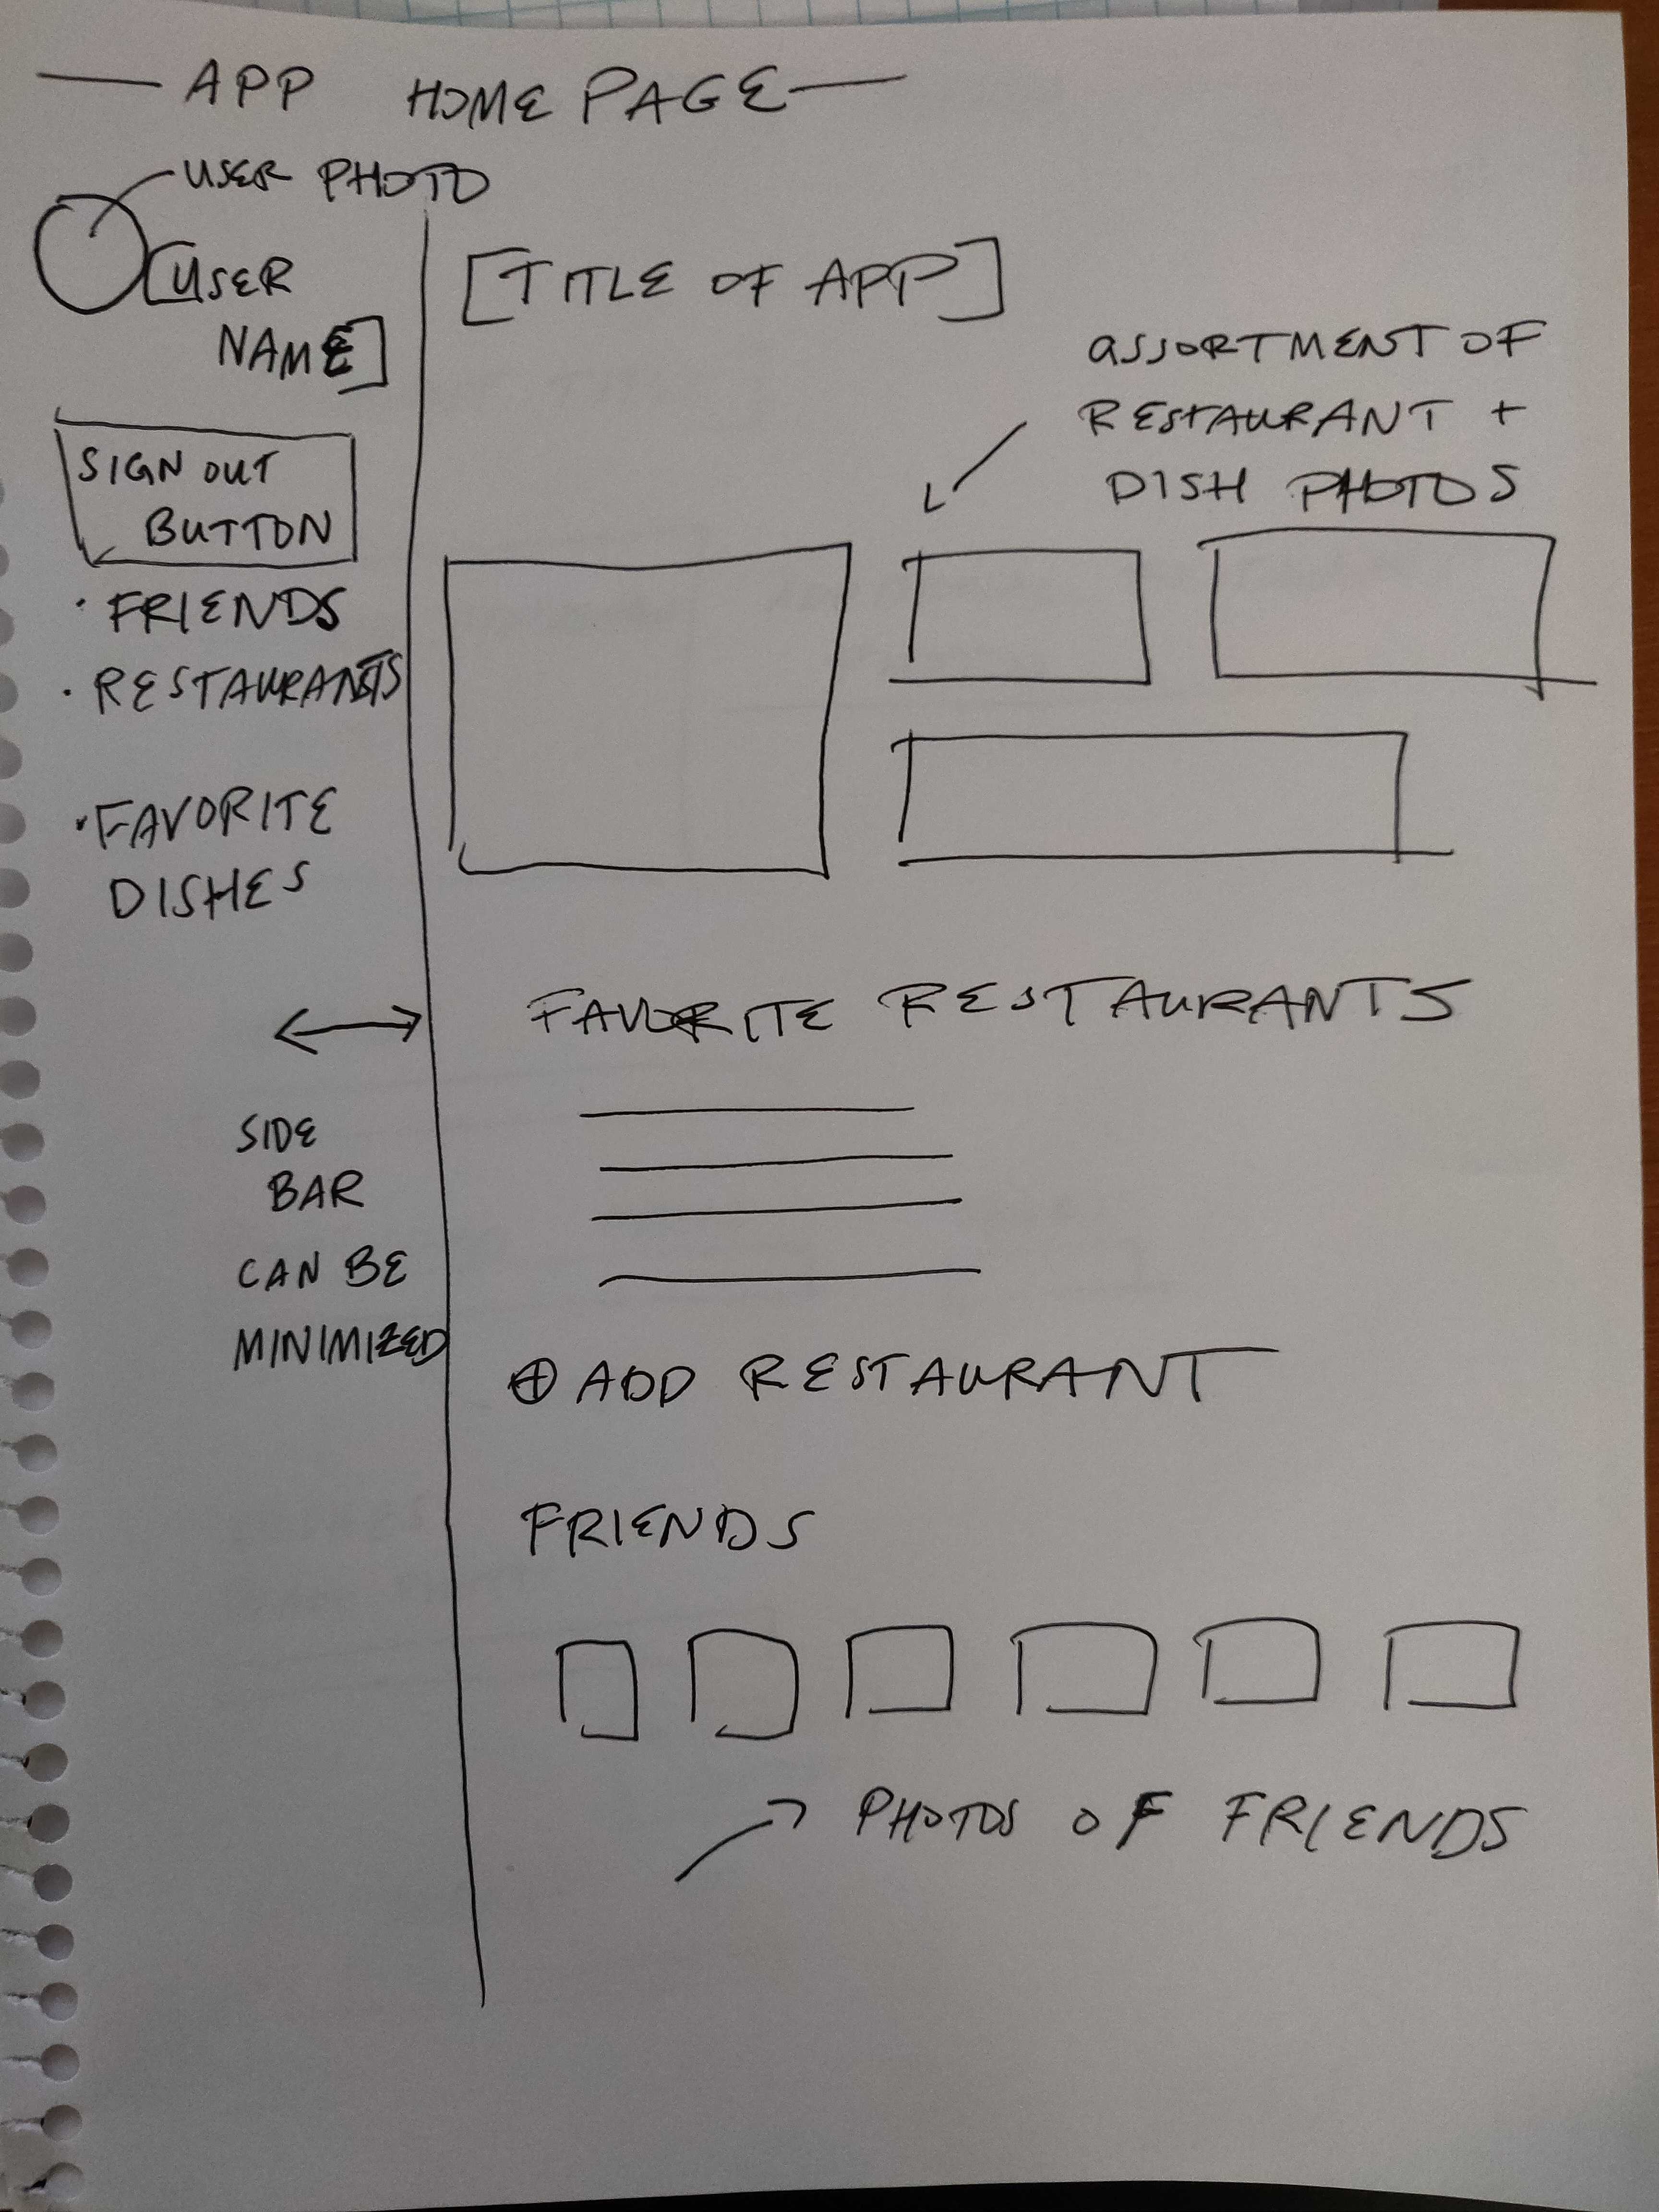 — APP HOME PAGE —
USER PHOTO
[USER
NAME]
SIGN OUT
BUTTON
· FRIENDS
· RESTAURANTS
· FAVORITE
DISHES
SIDE
BAR
CAN BE
MINIMIZED
[TITLE OF APP]
ASSORTMENT OF
RESTAURANT +
DISH PHOTOS
FAVORITE RESTAURANTS
⊕ ADD RESTAURANT
FRIENDS
PHOTOS OF FRIENDS